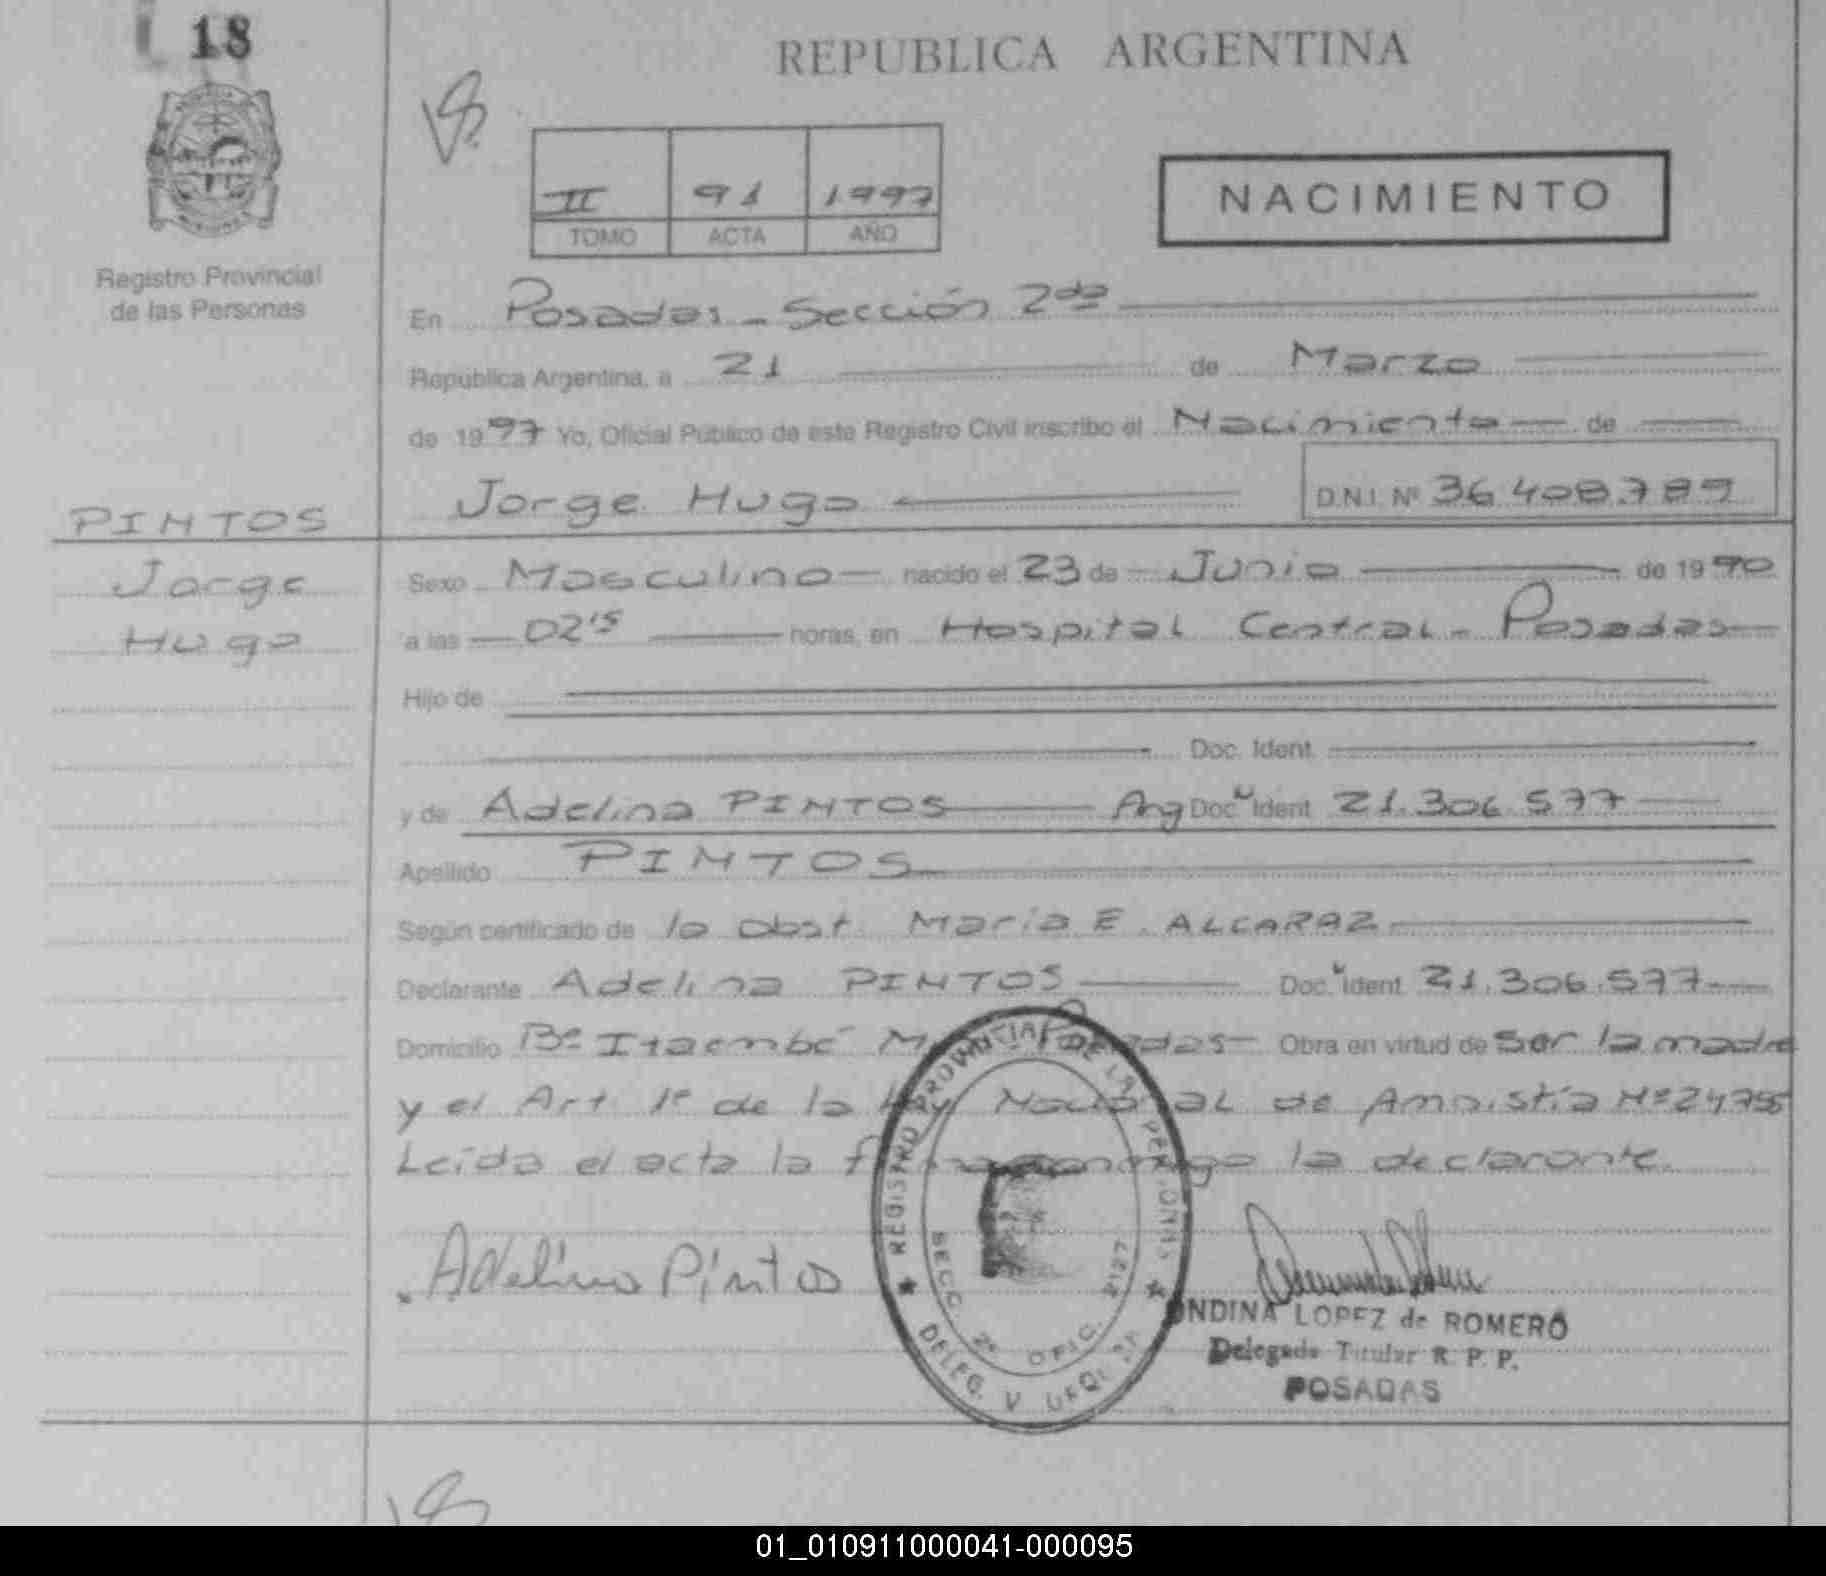 18
REPUBLICA ARGENTINA
II 91 1997
TOMO ACTA AÑO
NACIMIENTO
Registro Provincial
de las Personas
En Posadas - Sección 2da
República Argentina, a 21 de Marzo
de 1997 Yo, Oficial Público de este Registro Civil inscribo el Nacimiento de
Jorge Hugo D.N.I. Nº 36.408.789
PINTOS
Jorge
Hugo
Sexo Masculino nacido el 23 de Junio de 1990
a las 02'15 horas, en Hospital Central - Posadas
Hijo de
Doc. Ident.
y de Adelina PINTOS Arg Doc. Ident. 21.306.577
Apellido PINTOS
Según certificado de la Obst. María E. ALCARAZ
Declarante Adelina PINTOS Doc. Ident. 21.306.577
Domicilio Bº Itaembé Posadas Obra en virtud de ser la madre
y el Art. 1º de la Ley Nacional de Amnistía Nº 24755
Leída el acta la firma conmigo la declarante.
Adelina Pintos
REGISTRO PROVINCIAL DE LAS PERSONAS
SECC. 2º OFIC. 2127
DELEG.
ONDINA LOPEZ de ROMERO
Delegada Titular R. P. P.
POSADAS
01_010911000041-000095